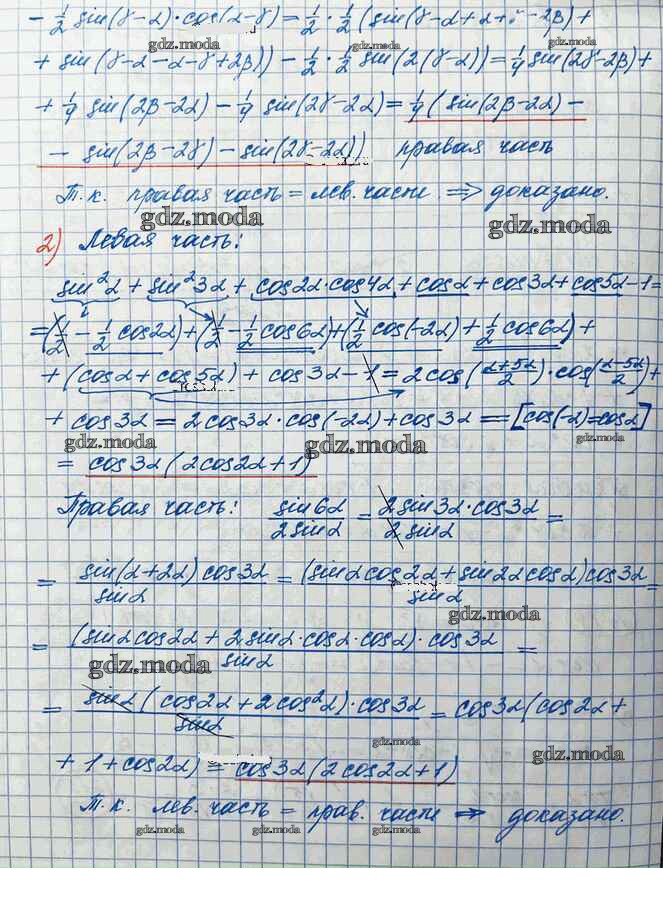 - 1/2 sin(γ-α)·cos(α-γ) = 1/2 · 1/2 (sin(γ-α+α+γ-2β)+
+ sin(γ-α-α-γ+2β)) - 1/2 · 1/2 sin(2(γ-α)) = 1/4 sin(2γ-2β)+
gdz.moda gdz.moda
+ 1/4 sin(2β-2α) - 1/4 sin(2γ-2α) = 1/4 (sin(2β-2α) -
- sin(2β-2γ) - sin(2γ-2α)) правая часть
Т.к. правая часть = лев. части ⇒ доказано.
gdz.moda gdz.moda
2) Левая часть:
sin²α + sin²3α + cos2α·cos4α + cosα + cos3α + cos5α - 1 =
= (1/2 - 1/2 cos2α) + (1/2 - 1/2 cos6α) + (1/2 cos(-2α) + 1/2 cos6α) +
+ (cosα + cos5α) + cos3α - 1 = 2cos((α+5α)/2)·cos((α-5α)/2) +
+ cos3α = 2cos3α·cos(-2α) + cos3α == [cos(-α)=cosα]
gdz.moda gdz.moda gdz.moda
= cos3α(2cos2α+1)
Правая часть: sin6α/2sinα = 2sin3α·cos3α/2sinα =
= sin(α+2α)cos3α/sinα = (sinαcos2α+sin2αcosα)cos3α/sinα =
gdz.moda
= (sinαcos2α + 2sinα·cosα·cosα)·cos3α/sinα =
gdz.moda
= sinα(cos2α+2cos²α)·cos3α/sinα = cos3α(cos2α+
gdz.moda gdz.moda
+ 1 + cos2α) = cos3α(2cos2α+1)
Т.к. лев. часть = прав. части ⇒ доказано.
gdz.moda gdz.moda gdz.moda gdz.moda